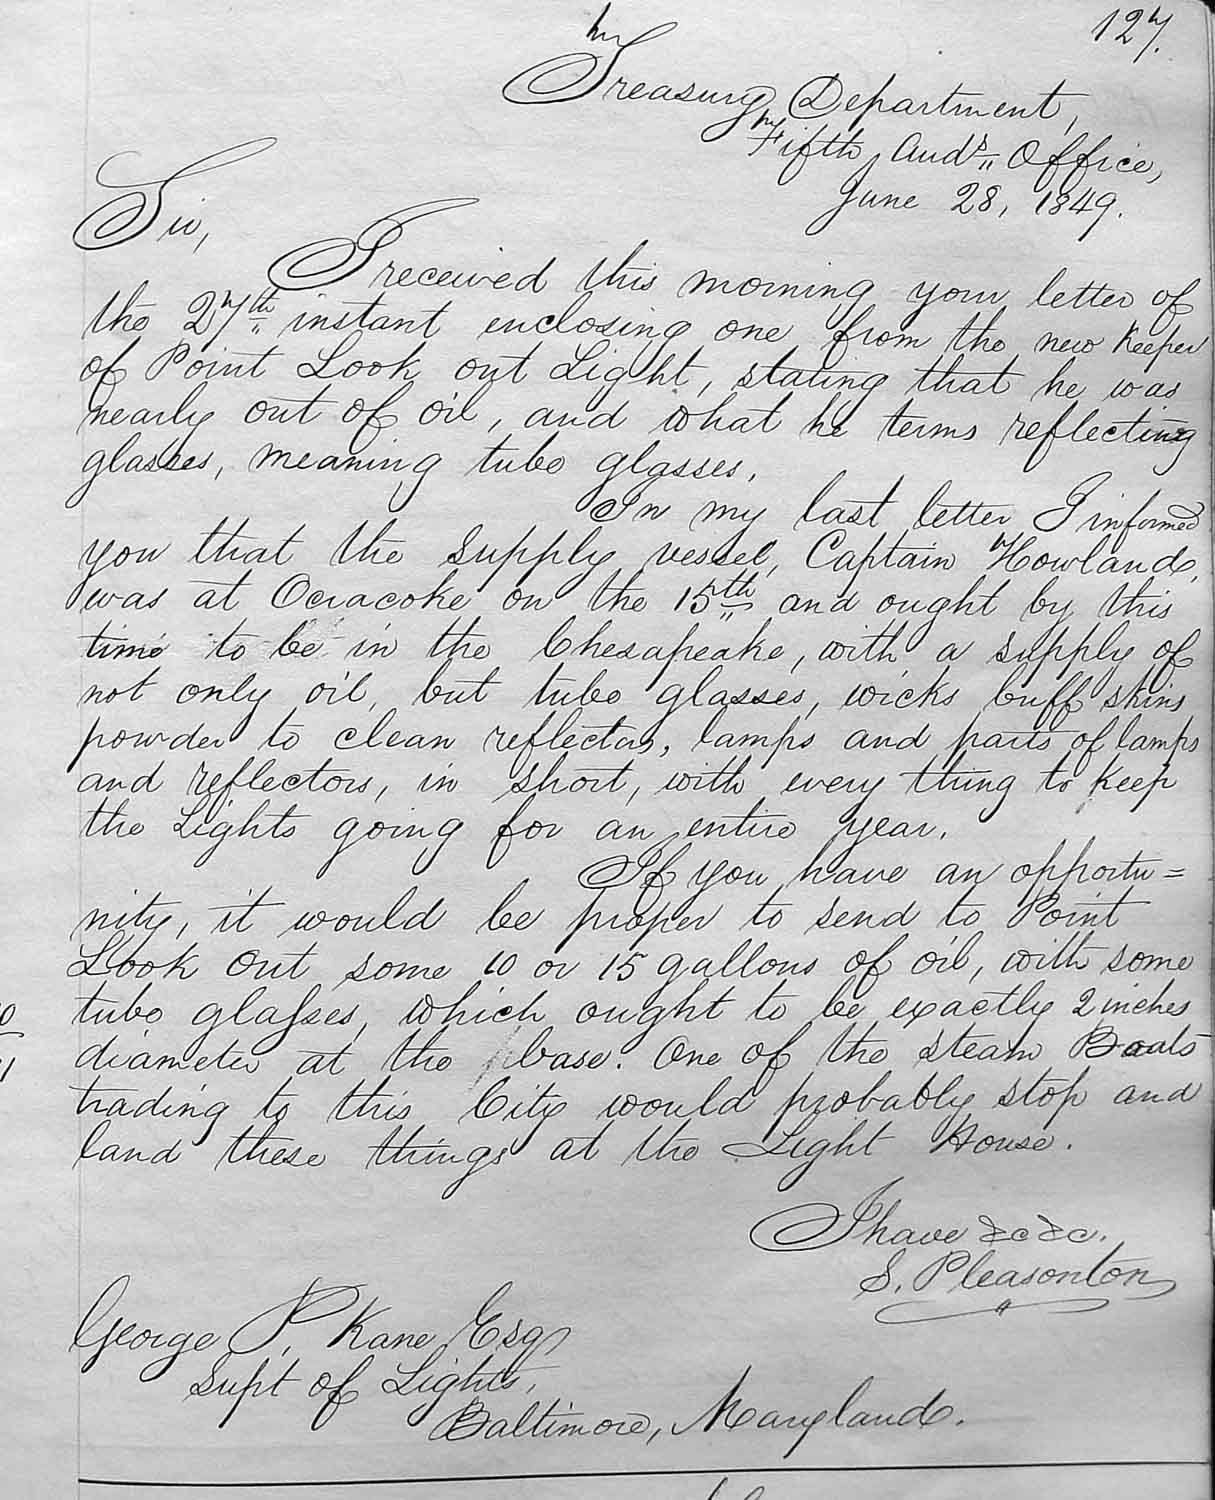 127.
Treasury Department,
Fifth Audr. Office,
June 28, 1849.
Sir,
I received this morning your letter of
the 27th instant enclosing one from the new Keeper
of Point Look out Light, stating that he was
nearly out of oil, and what he terms reflecting
glasses, meaning tube glasses.
In my last letter I informed
you that the supply vessel, Captain Howland,
was at Ocracoke on the 15th and ought by this
time to be in the Chesapeake, with a supply of
not only oil, but tube glasses, wicks buff skins
powder to clean reflectors, lamps and parts of lamps
and reflectors, in short, with every thing to keep
the Lights going for an entire year.
If you have an opportu=
nity, it would be proper to send to Point
Look Out some 10 or 15 gallons of oil, with some
tube glasses, which ought to be exactly 2 inches
diameter at the base. One of the steam Boats
trading to this City would probably stop and
land these things at the Light House.
I have &c &c.
S. Pleasonton
George P. Kane Esq
Supt of Lights,
Baltimore, Maryland.